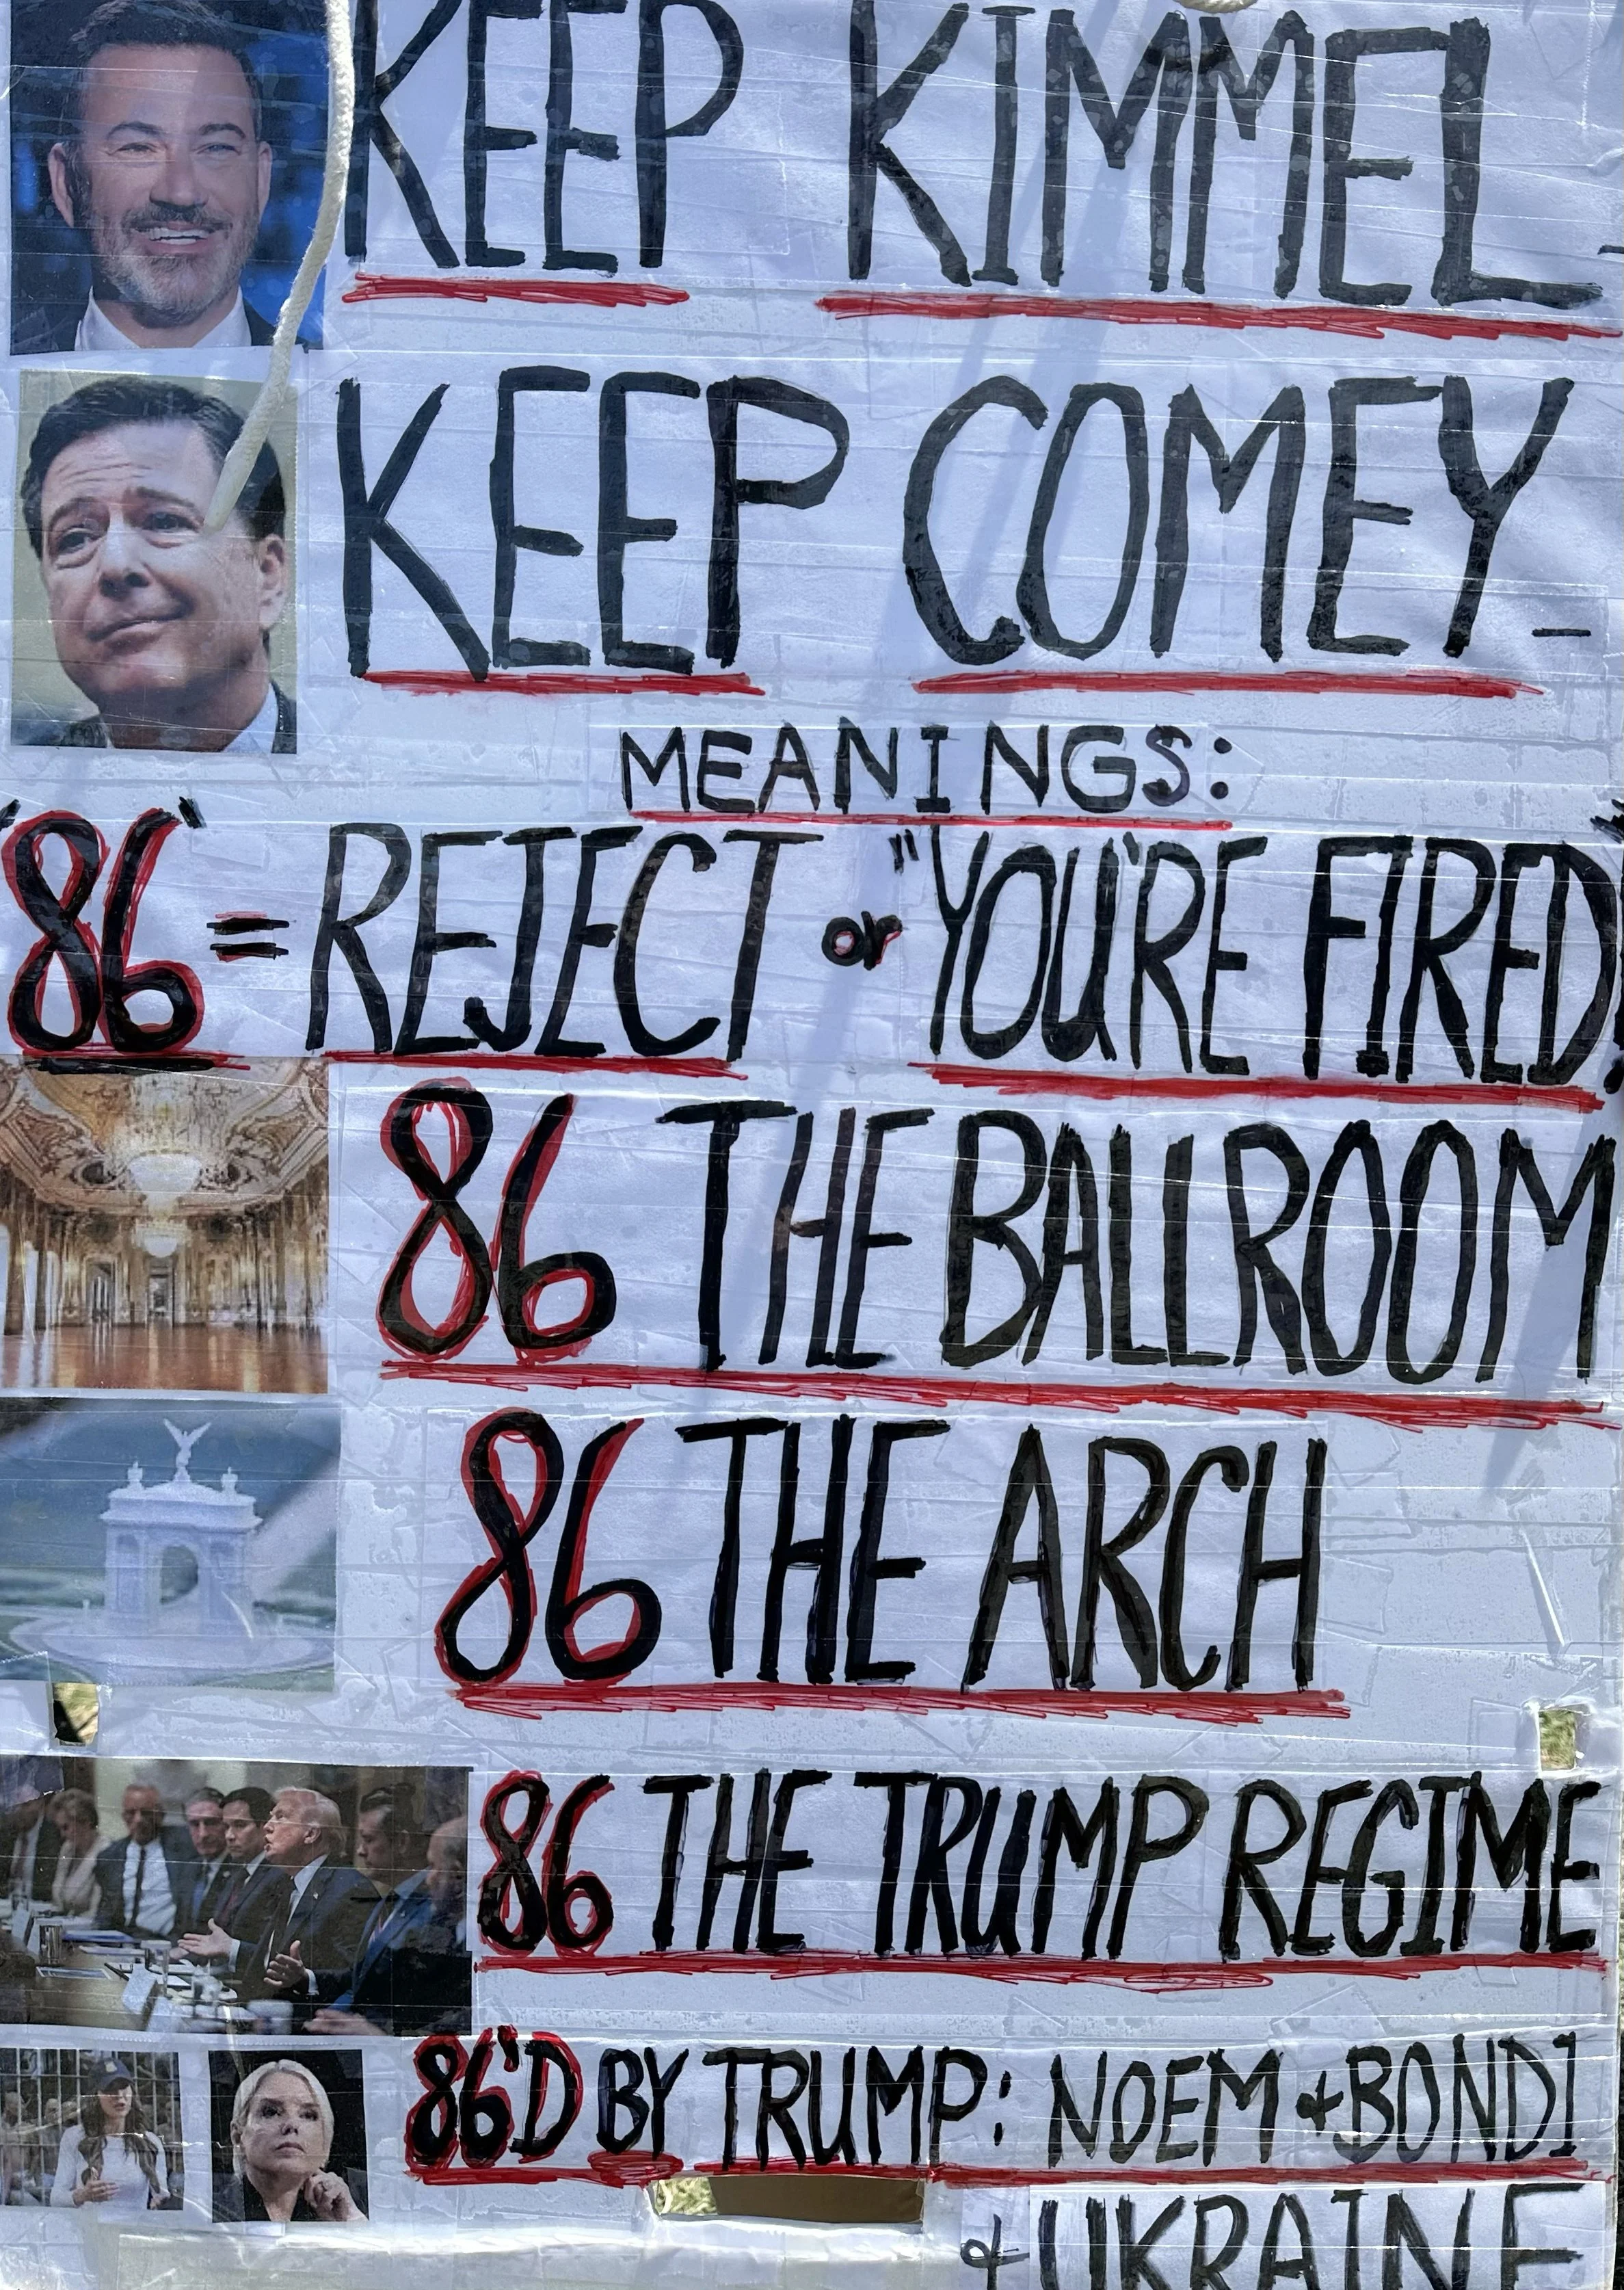 KEEP KIMMEL-
KEEP COMEY-
MEANINGS:
"86" = REJECT or "YOU'RE FIRED!"
86 THE BALLROOM
86 THE ARCH
86 THE TRUMP REGIME
86'D BY TRUMP: NOEM & BONDI
& UKRAINE